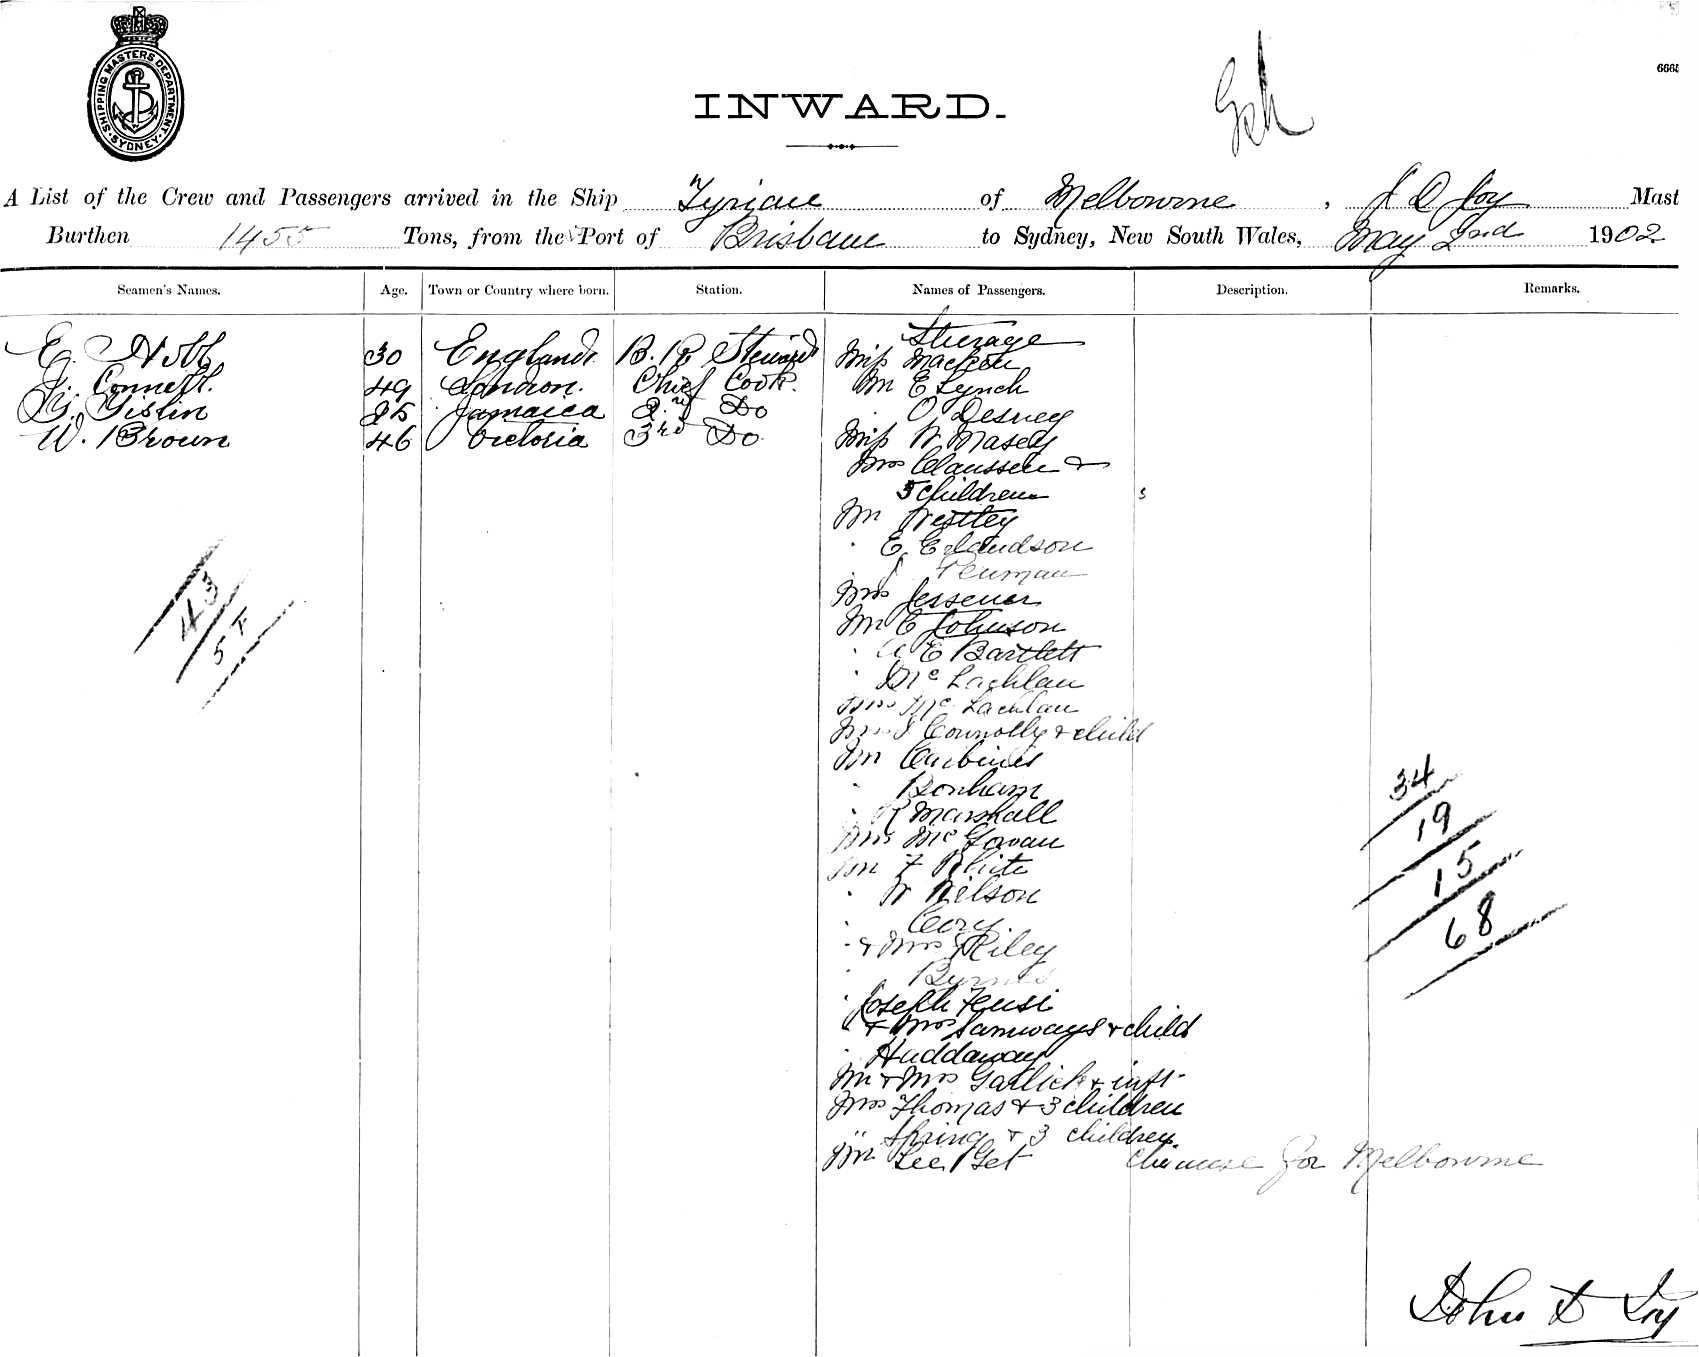 SHIPPING MASTERS DEPARTMENT. SYDNEY
666
INWARD.
A List of the Crew and Passengers arrived in the Ship Tyrian of Melbourne, J D Joy Mast
Burthen 1455 Tons, from the Port of Brisbane to Sydney, New South Wales, May 2nd 1902
Seamen's Names. Age. Town or Country where born. Station. Names of Passengers. Description. Remarks.
Steerage
E. Nobb 30 England B. R Steward Miss
J. Connell. 49 London. Chief Cook. Mr E Lynch
Gislin 25 Jamaica 2nd Do O Desney
W. Brown 46 Victoria 3rd Do Miss W Masey
Mrs Claussen &
5 children
Mr Westley
E.
Penman
Mrs
Mr C Johnson
A E Bartlett
McLachlan
Mrs McLachlan
Connolly & child
Mr
Bonham
R Marshall
Mrs McGowan
Mr F White
W Nilson
Cory
& Mrs Riley
Byrnes
Joseph
& Mrs Samways & child
Haddaway
Mr & Mrs Garlick & inft
Mrs Thomas & 3 children
" Spring & 3 children
Mr Lee Get Chinese for Melbourne
43
57
34
19
15
68
John D Joy